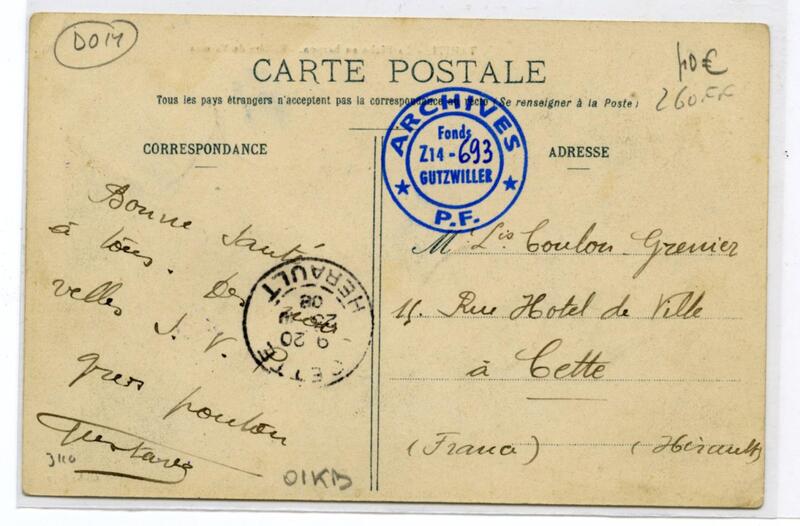 DO14
10€
260FF
CARTE POSTALE
Tous les pays étrangers n'acceptent pas la correspondance au recto (Se renseigner à la Poste)
CORRESPONDANCE
ARCHIVES
Fonds
Z14-693
GUTZWILLER
P.F.
ADRESSE
Bonne santé
à tous. Des nou-
velles S.V.
gros poutou
Gustave
CETTE
9 20
08
HERAULT
Mr Lis Coulon Grenier
15 Rue Hotel de Ville
à Cette
(France) (Hérault)
3110
01KB